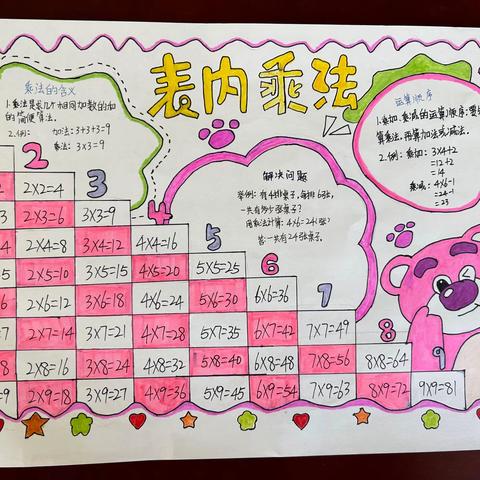 表内乘法
乘法的含义
1.乘法是求几个相同加数的和
的简便算法。
2.例： 加法：3+3+3=9
乘法：3×3=9
运算顺序
1.乘加、乘减的运算顺序：要
算乘法，再算加法或减法。
2.例： 乘加：3×4+2
=12+2
=14
乘减：4×6-1
=24-1
=23
解决问题
举例：有4排桌子，每排6张，
一共有多少张桌子？
用乘法计算：4×6=24（张）
答：一共有24张桌子。
2
3
4
5
6
7
8
9
2×2=4
3 2×3=6 3×3=9
4 2×4=8 3×4=12 4×4=16
5 2×5=10 3×5=15 4×5=20 5×5=25
2×6=12 3×6=18 4×6=24 5×6=30 6×6=36
7 2×7=14 3×7=21 4×7=28 5×7=35 6×7=42 7×7=49
8 2×8=16 3×8=24 4×8=32 5×8=40 6×8=48 7×8=56 8×8=64
=9 2×9=18 3×9=27 4×9=36 5×9=45 6×9=54 7×9=63 8×9=72 9×9=81